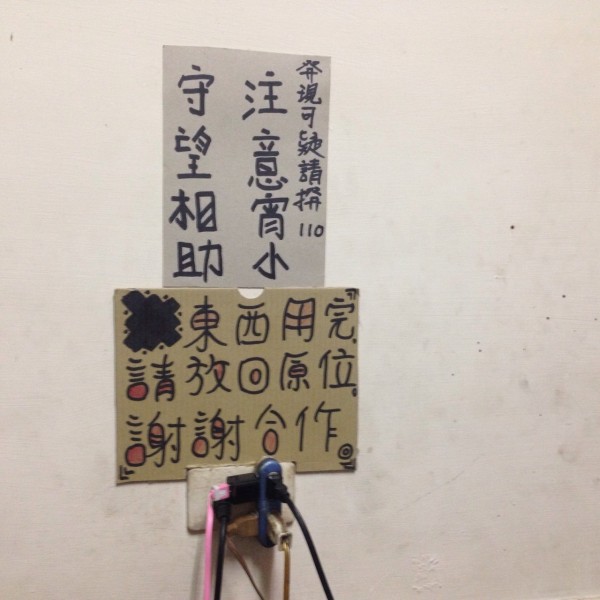 發現可疑請撥110
注意宵小
守望相助
東西用完
請放回原位
謝謝合作